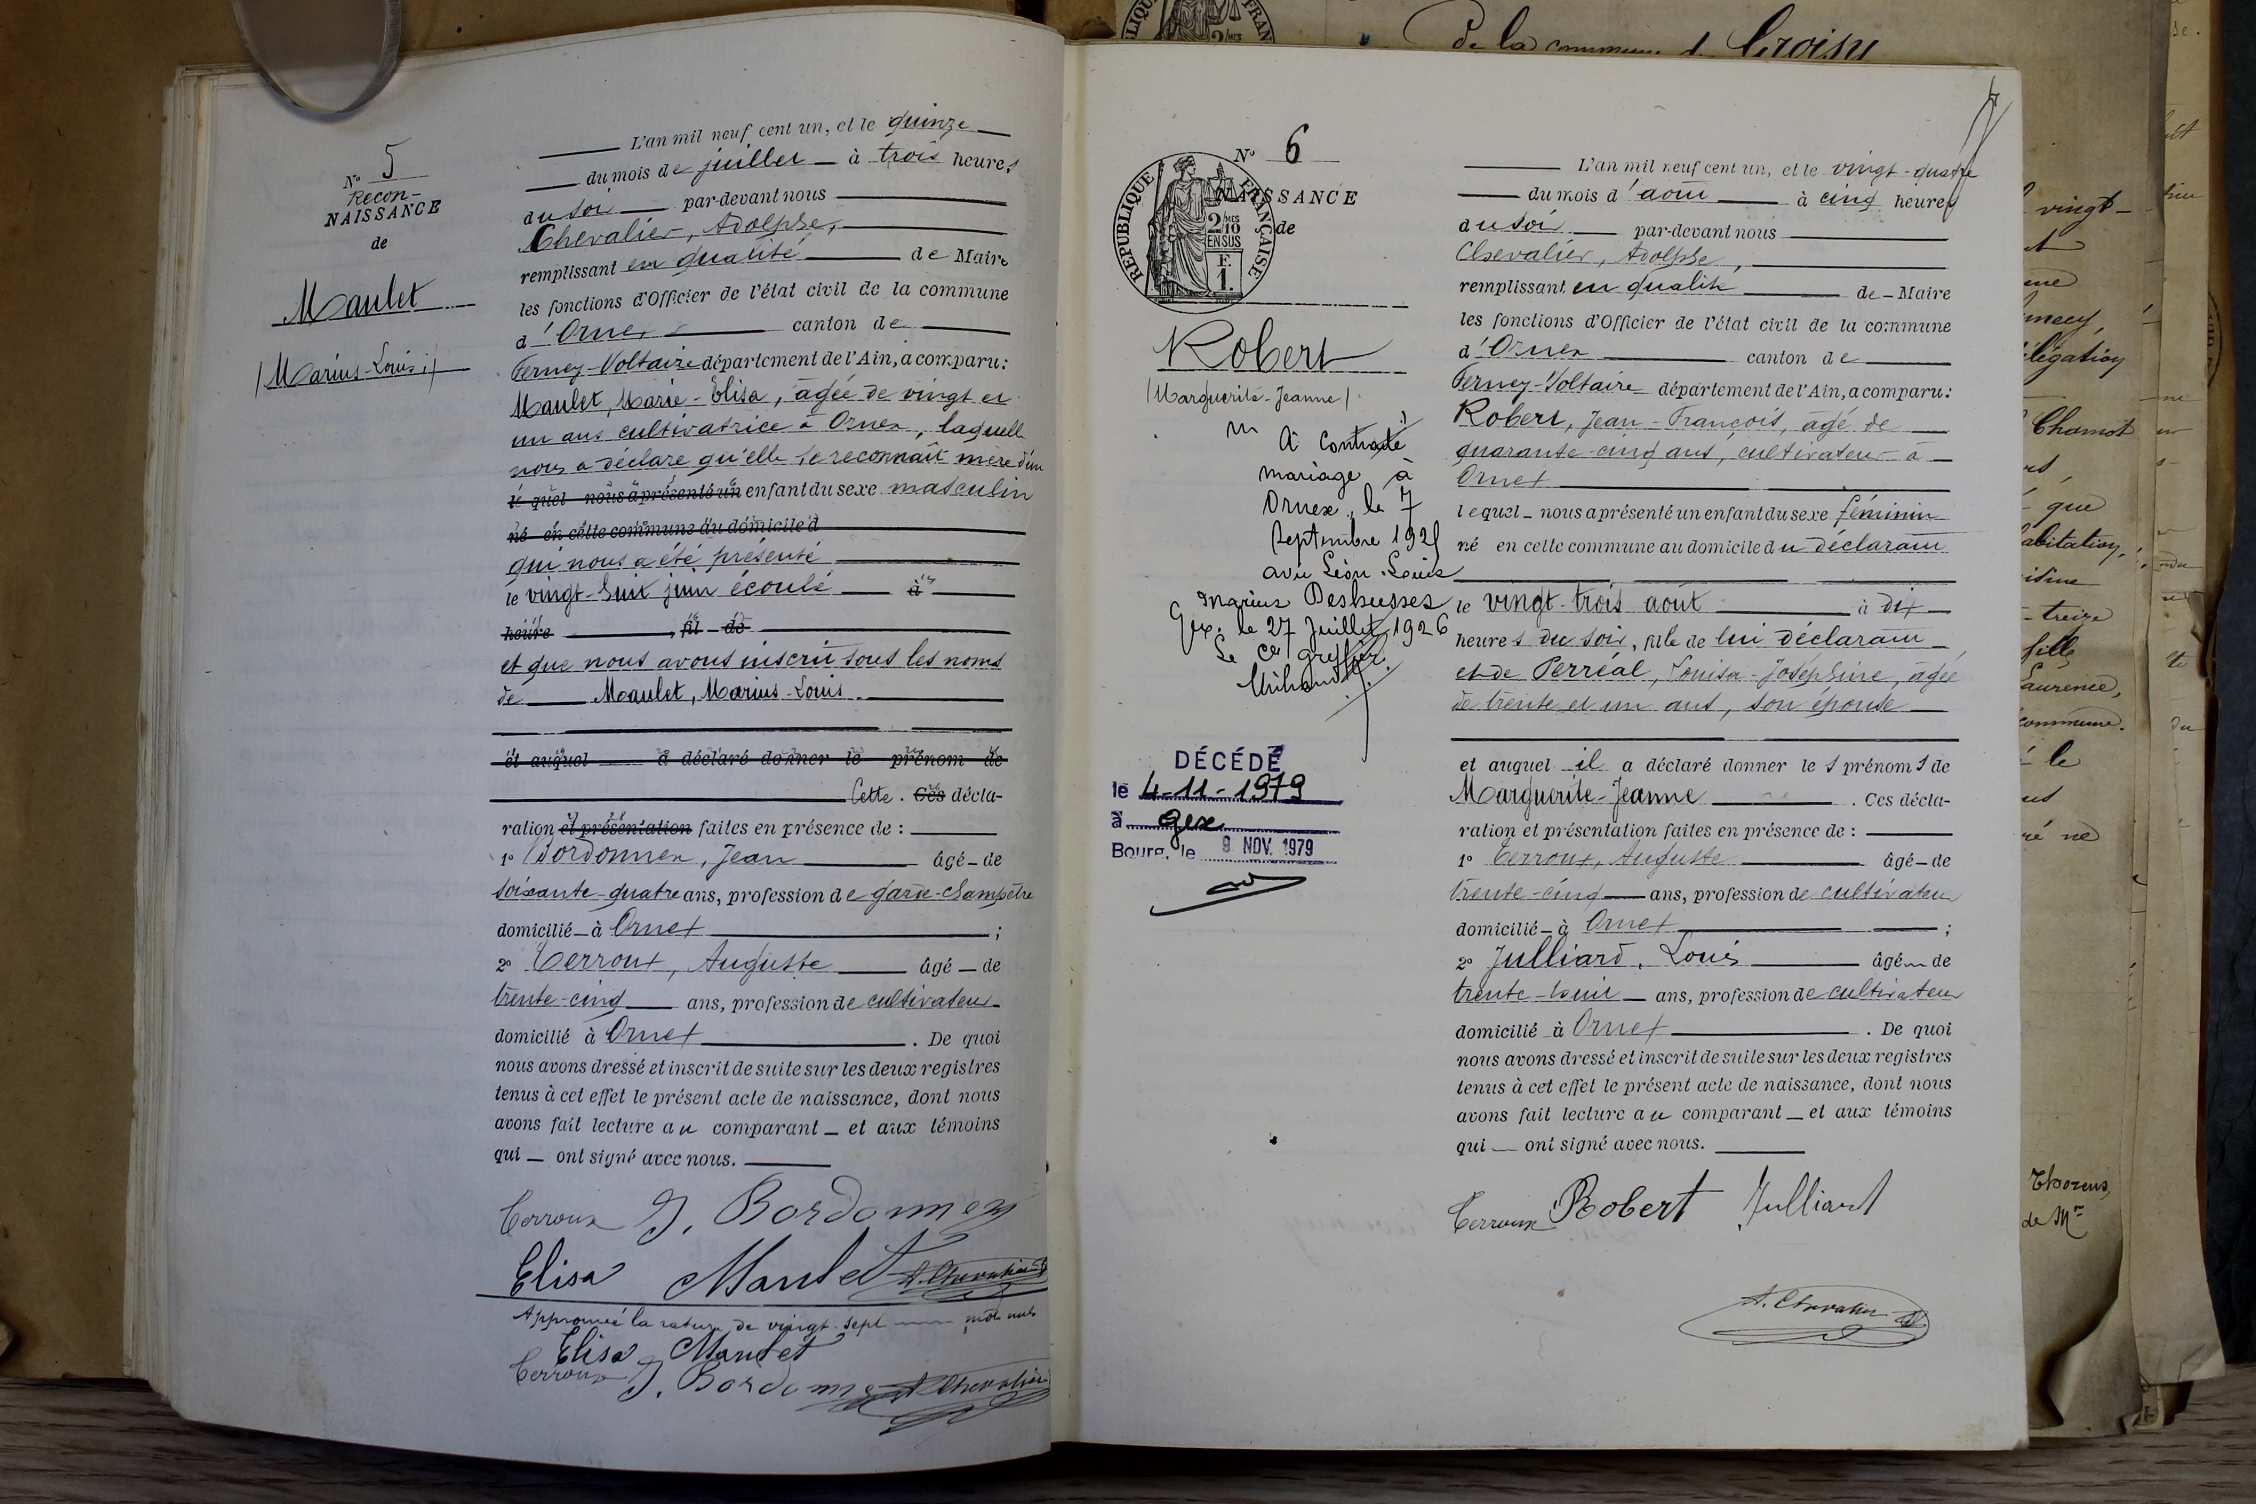 De la commune d Croisy
N° 5
Recon-
NAISSANCE
de
Maulet
(Marius-Louis)
L'an mil neuf cent un, et le quinze
du mois de juillet à trois heures
du soir par-devant nous
Chevalier, Adolphe,
remplissant en qualité de Maire
les fonctions d'Officier de l'état civil de la commune
d'Ornex canton de
Ferney-Voltaire département de l'Ain, a comparu:
Maulet, Marie-Elisa, âgée de vingt et
un ans cultivatrice à Ornex, laquelle
nous a déclaré qu'elle se reconnaît mère d'un
lequel nous a présenté un enfant du sexe masculin
né en cette commune au domicile d
qui nous a été présenté
le vingt-huit juin écoulé à
heure , fil de
et que nous avons inscrit sous les noms
de Maulet, Marius-Louis
et auquel a déclaré donner le prénom de
Cette. Ces décla-
ration et présentation faites en présence de :
1° Bordonnex, Jean âgé de
soixante-quatre ans, profession de garde-champêtre
domicilié à Ornex ;
2° Terroux, Auguste âgé de
trente-cinq ans, profession de cultivateur
domicilié à Ornex . De quoi
nous avons dressé et inscrit de suite sur les deux registres
tenus à cet effet le présent acte de naissance, dont nous
avons fait lecture au comparant et aux témoins
qui ont signé avec nous.
Terroux J. Bordonnex
Elisa Maulet A. Chevalier
Approuvé la rature de vingt-sept mots nuls
Elisa Maulet
Terroux J. Bordonnex A. Chevalier
N° 6
NAISSANCE
de
RÉPUBLIQUE FRANÇAISE
2/10 MES
EN SUS
F.
1.
Robert
(Marguerite-Jeanne)
A contracté
mariage à
Ornex, le 7
Septembre 1925
avec Léon-Louis
Marius Desbusses
Gex, le 27 Juillet 1926
Le Cis greffier
DÉCÉDÉ
le 4-11-1979
à Gex
Bourg, le 9 NOV. 1979
L'an mil neuf cent un, et le vingt-quatre
du mois d'août à cinq heures
du soir par-devant nous
Chevalier, Adolphe,
remplissant en qualité de Maire
les fonctions d'Officier de l'état civil de la commune
d'Ornex canton de
Ferney-Voltaire département de l'Ain, a comparu:
Robert, Jean-François, âgé de
quarante-cinq ans, cultivateur à
Ornex
lequel nous a présenté un enfant du sexe féminin
né en cette commune au domicile du déclarant
le vingt-trois août à dix
heures du soir, fille de lui déclarant
et de Perréal, Louisa-Joséphine, âgée
de trente et un ans, son épouse
et auquel il a déclaré donner les prénoms de
Marguerite-Jeanne . Ces décla-
ration et présentation faites en présence de :
1° Terroux, Auguste âgé de
trente-cinq ans, profession de cultivateur
domicilié à Ornex ;
2° Julliard, Louis âgé de
trente-huit ans, profession de cultivateur
domicilié à Ornex . De quoi
nous avons dressé et inscrit de suite sur les deux registres
tenus à cet effet le présent acte de naissance, dont nous
avons fait lecture au comparant et aux témoins
qui ont signé avec nous.
Terroux Robert Julliard
A. Chevalier
vingt-
Chamot
que
habitation,
treize
fille
Laurence,
commune.
le
né
Thorens,
de Mr